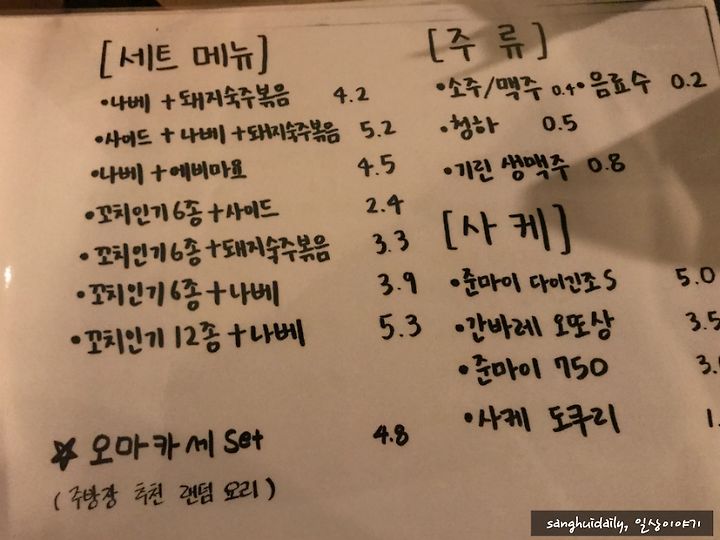 [세트 메뉴]
•나베 + 돼지숙주볶음 4.2
•사이드 + 나베 + 돼지숙주볶음 5.2
•나베 + 에비마요 4.5
•꼬치인기 6종 + 사이드 2.4
•꼬치인기 6종 + 돼지숙주볶음 3.3
•꼬치인기 6종 + 나베 3.9
•꼬치인기 12종 + 나베 5.3
☆ 오마카세 Set 4.8
(주방장 추천 랜덤 요리)
[주류]
•소주/맥주 0.4 •음료수 0.2
•청하 0.5
•기린 생맥주 0.8
[사케]
•준마이 다이긴조 S 5.0
•간바레 오또상 3.5
•준마이 750 3.
•사케 도쿠리 1.
sanghuidaily, 일상이야기